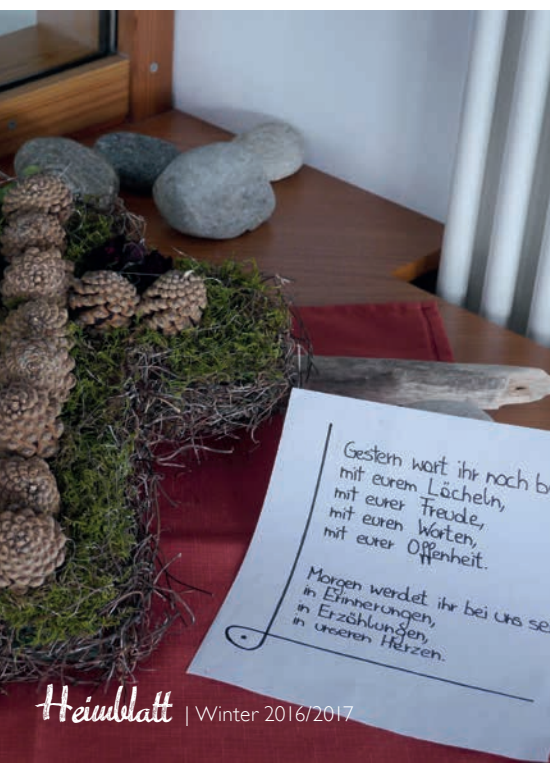 Gestern wart ihr noch b
mit eurem Lächeln,
mit eurer Freude,
mit euren Worten,
mit eurer Offenheit.
Morgen werdet ihr bei uns se
in Erinnerungen,
in Erzählungen,
in unseren Herzen.
Heimblatt | Winter 2016/2017